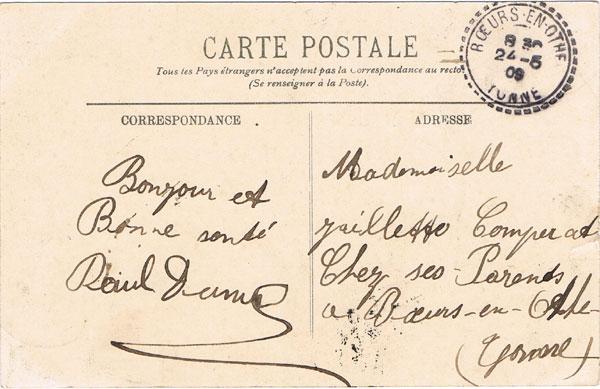 CARTE POSTALE
Tous les Pays étrangers n'acceptent pas la Correspondance au recto
(Se renseigner à la Poste).
RŒURS-EN-OTHE
8 30
24-5
09
YONNE
CORRESPONDANCE
ADRESSE
Bonjour et
Bonne santé
Raoul
Mademoiselle
Comperat
Chez ses Parents
a Bœurs-en-Othe
(Yonne)